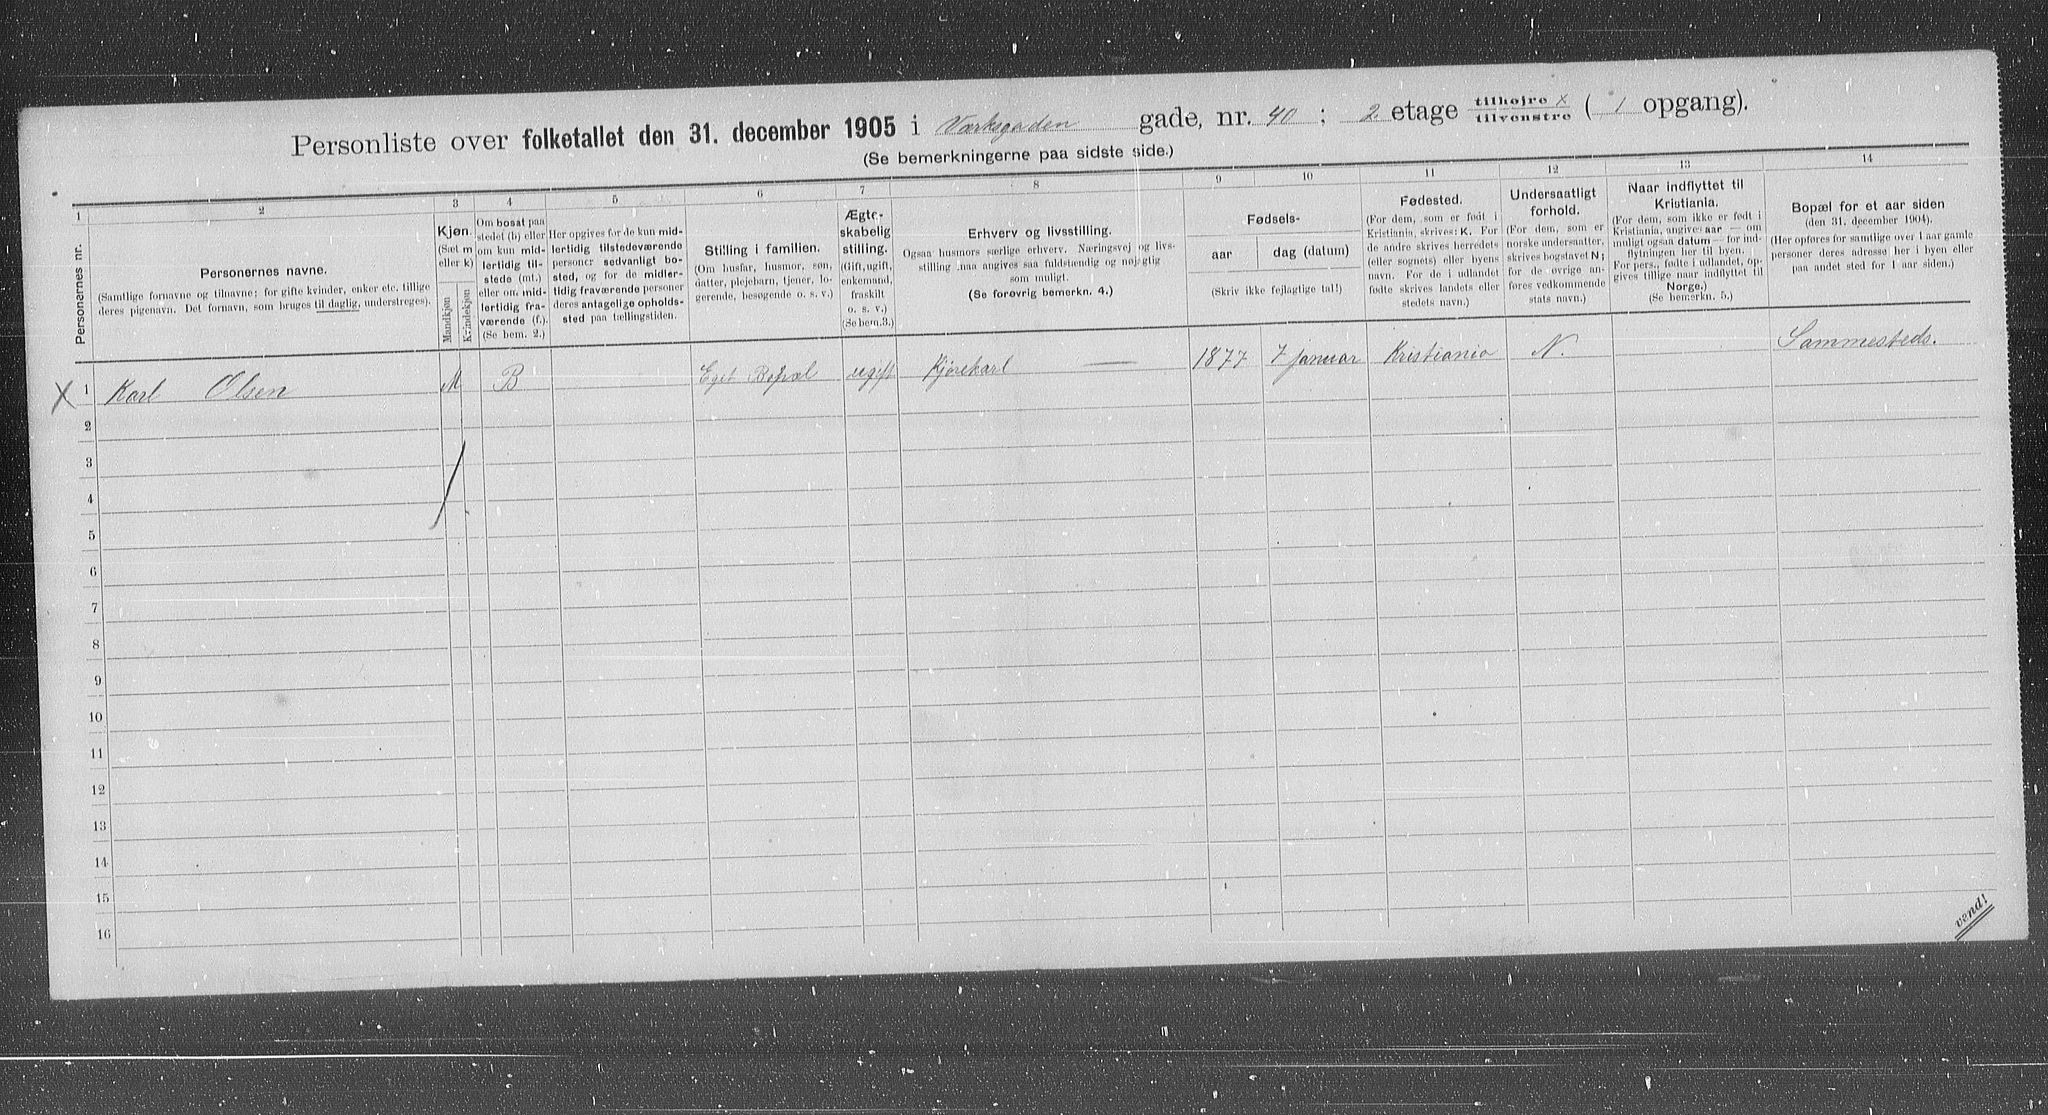 Personliste over folketallet den 31. december 1905 i Værksgaden gade, nr. 40 ; 2 etage tilhøjre x ( 1 opgang).
tilvenstre
(Se bemerkningerne paa sidste side.)
1 2 3 4 5 6 7 8 9 10 11 12 13 14
Personernes nr.
Personernes navne.
(Samtlige fornavne og tilnavne; for gifte kvinder, enker etc. tillige
deres pigenavn. Det fornavn, som bruges til daglig, understreges).
Kjøn.
(Sæt m
eller k)
Mandkjøn
Kvindekjøn
Om bosat paa
stedet (b) eller
om kun mid-
lertidig til-
stede (mt.)
eller om mid-
lertidig fra-
værende (f.).
(Se bem. 2.)
Her opgives for de kun mid-
lertidig tilstedeværende
personer sedvanligt bo-
sted, og for de midler-
tidig fraværende personer
deres antagelige opholds-
sted paa tællingstiden.
Stilling i familien.
(Om husfar, husmor, søn,
datter, plejebarn, tjener, lo-
gerende, besøgende o. s. v.)
Ægte-
skabelig
stilling.
(Gift, ugift,
enkemand,
fraskilt
o. s. v.)
(Se bem.3.)
Erhverv og livsstilling.
Ogsaa husmors særlige erhverv. Næringsvej og livs-
stilling maa angives saa fuldstændig og nøjagtig
som muligt.
(Se forøvrig bemerkn. 4.)
Fødsels-
aar dag (datum)
(Skriv ikke fejlagtige tal!)
Fødested.
(For dem, som er født i
Kristiania, skrives: K. For
de andre skrives herredets
(eller sognets) eller byens
navn. For de i udlandet
fødte skrives landets eller
stedets navn.)
Undersaatligt
forhold.
(For dem, som er
norske undersaatter,
skrives bogstavet N;
for de øvrige an-
føres vedkommende
stats navn.)
Naar indflyttet til
Kristiania.
(For dem, som ikke er født i
Kristiania, angives aar — om
muligt ogsaa datum — for ind-
flytningen her til byen.
For pers., fødte i udlandet, op-
gives tillige naar indflyttet til
Norge.)
(Se bemerkn. 5.)
Bopæl for et aar siden
(den 31. december 1904).
(Her opføres for samtlige over 1 aar gamle
personer deres adresse her i byen eller
paa andet sted for 1 aar siden.)
X 1 Karl Olsen M B Eget Bopæl ugift Kjørekarl — 1877 7 januar Kristiania N. Sammesteds.
2
3
4
5
6
7
8
9
10
11
12
13
14
15
16
vend!